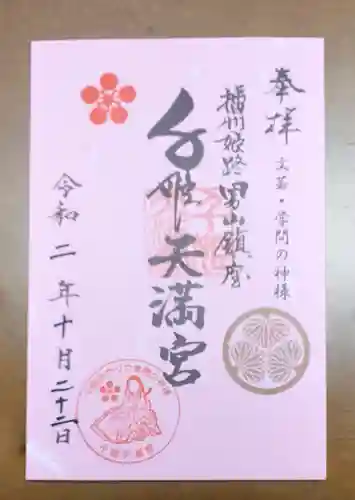 奉拝
文芸・学問の神様
播州姫路男山鎮座
千姫天満宮
令和二年十月二十二日